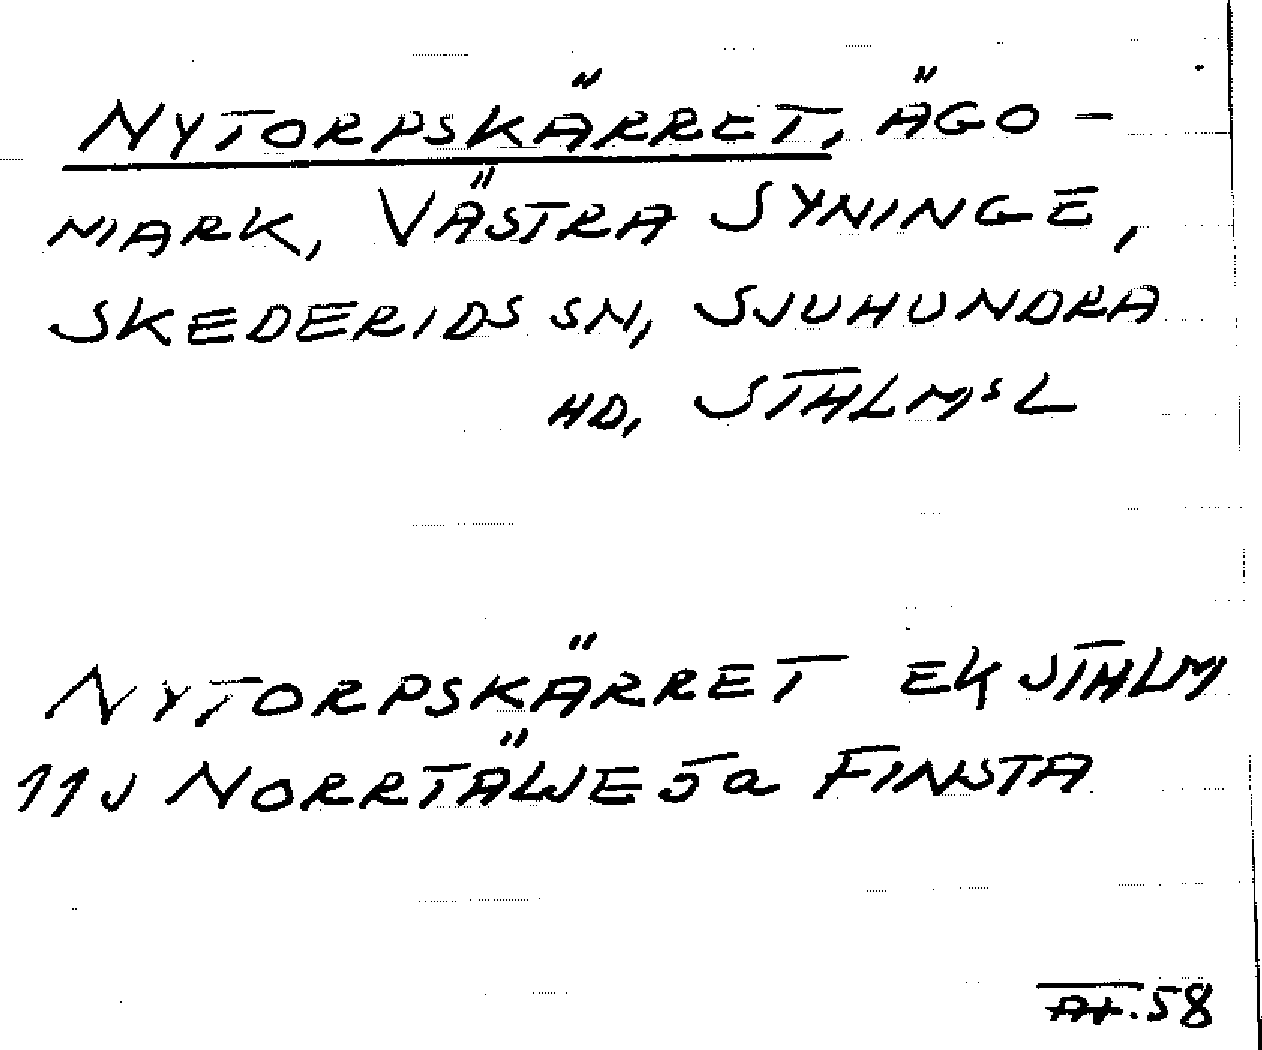 NYTORPSKÄRRET, ÄGO-
MARK, VÄSTRA SYNINGE,
SKEDERIDS SN, SJUHUNDRA
HD, STHLMS L
NYTORPSKÄRRET EK STHLM
11J NORRTÄLJE 5a FINSTA
58